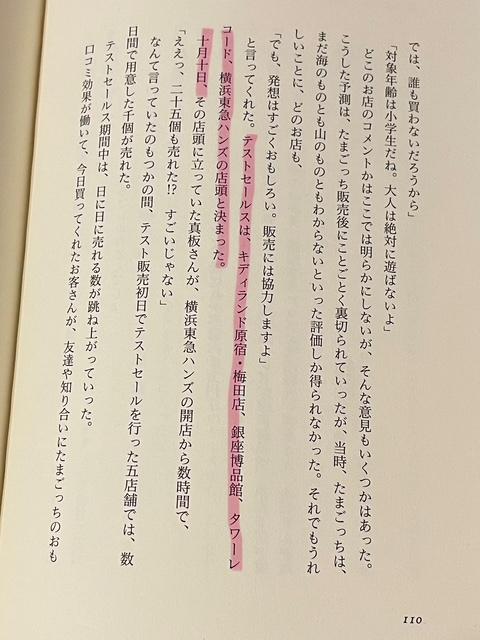 では、誰も買わないだろうから」
「対象年齢は小学生だね。大人は絶対に遊ばないよ」
どこのお店のコメントかはここでは明らかにしないが、そんな意見もいくつかはあった。
こうした予測は、たまごっち販売後にことごとく裏切られていったが、当時、たまごっちは、
まだ海のものとも山のものともわからないといった評価しか得られなかった。それでもうれ
しいことに、どのお店も、
「でも、発想はすごくおもしろい。販売には協力しますよ」
と言ってくれた。テストセールスは、キディランド原宿・梅田店、銀座博品館、タワーレ
コード、横浜東急ハンズの店頭と決まった。
十月十日、その店頭に立っていた真板さんが、横浜東急ハンズの開店から数時間で、
「ええっ、二十五個も売れた!? すごいじゃない」
なんて言っていたのもつかの間、テスト販売初日でテストセールを行った五店舗では、数
日間で用意した千個が売れた。
テストセールス期間中は、日に日に売れる数が跳ね上がっていった。
口コミ効果が働いて、今日買ってくれたお客さんが、友達や知り合いにたまごっちのおも
110